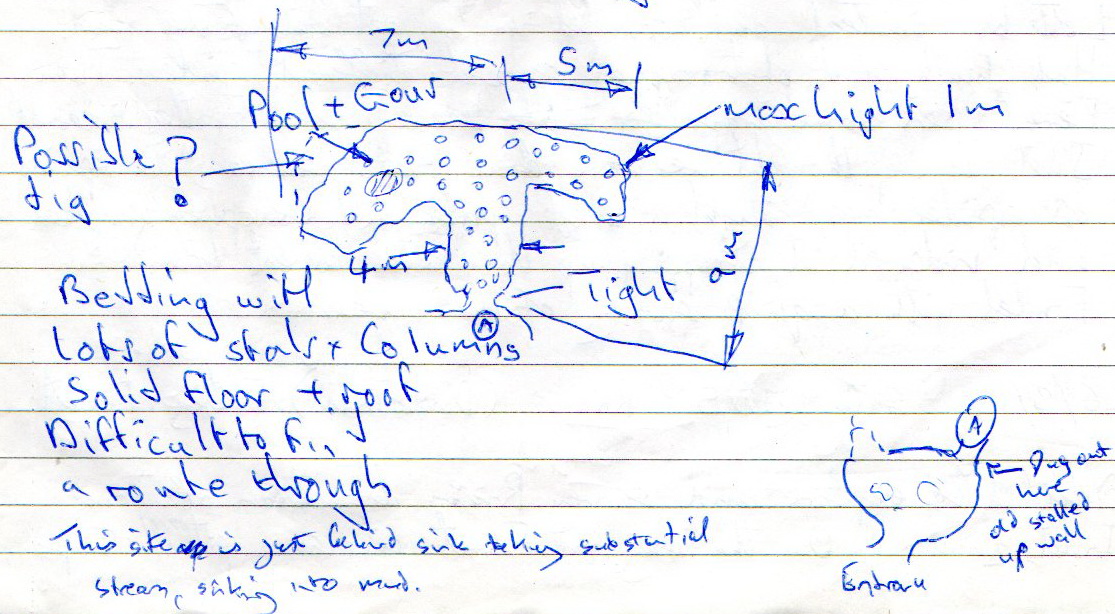 7m
5m
Pool + Gour
max hight 1m
Possible ?
dig
4m
9m
Tight
A
Bedding with
Lots of stals + Columns
Solid floor + roof
Difficult to find
a route through
This site is just behind sink taking substantial
stream, sinking into mud.
A
Dug out
here
old stalled
up wall
Entrance